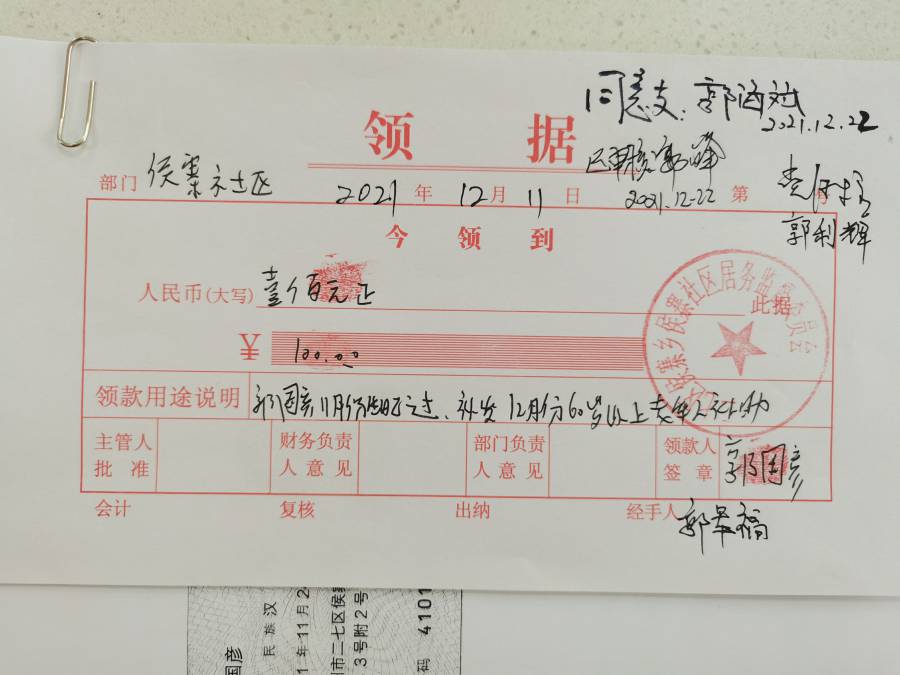 同意支.郭海斌
2021.12.22
领 据
已审核郭峰
2021.12-22
部门 侯寨社区 2021年12月11日 第 号
郭利辉
今领到
人民币(大写) 壹佰元正 此据
¥ 100.00
领款用途说明 郭国彦11月份生日已过、补发12月份60岁以上老年人补助
主管人批准 财务负责人意见 部门负责人意见 领款人签章 郭国彦
会计 复核 出纳 经手人
侯寨乡侯寨社区居务监督委员会
国彦
民族 汉
年 11月2
市二七区侯寨
3号附2号
码 4101